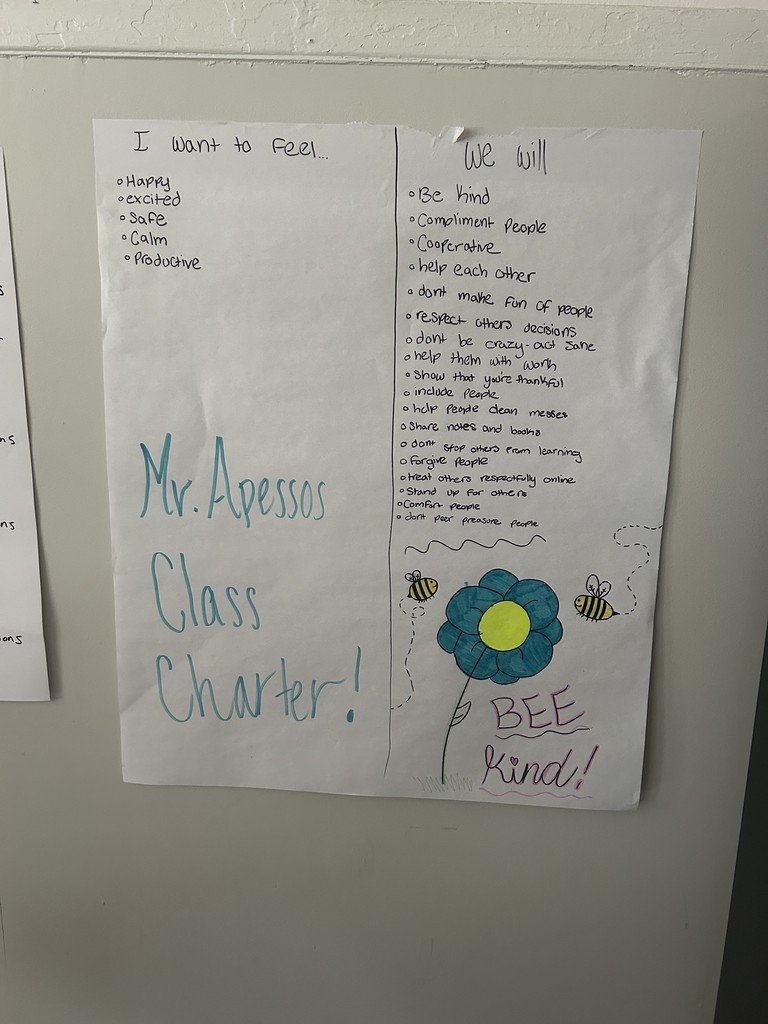 I want to feel...
Happy
excited
Safe
Calm
Productive
Mr. Apessos
Class
Charter!
We will
Be kind
Compliment people
Cooperative
help each other
dont make fun of people
respect others decisions
dont be crazy-act sane
help them with work
Show that you're thankful
include people
help people clean messes
Share notes and books
dont stop others from learning
forgive people
treat others respectfully online
Stand up for others
Comfort people
dont peer preasure people
BEE
Kind!